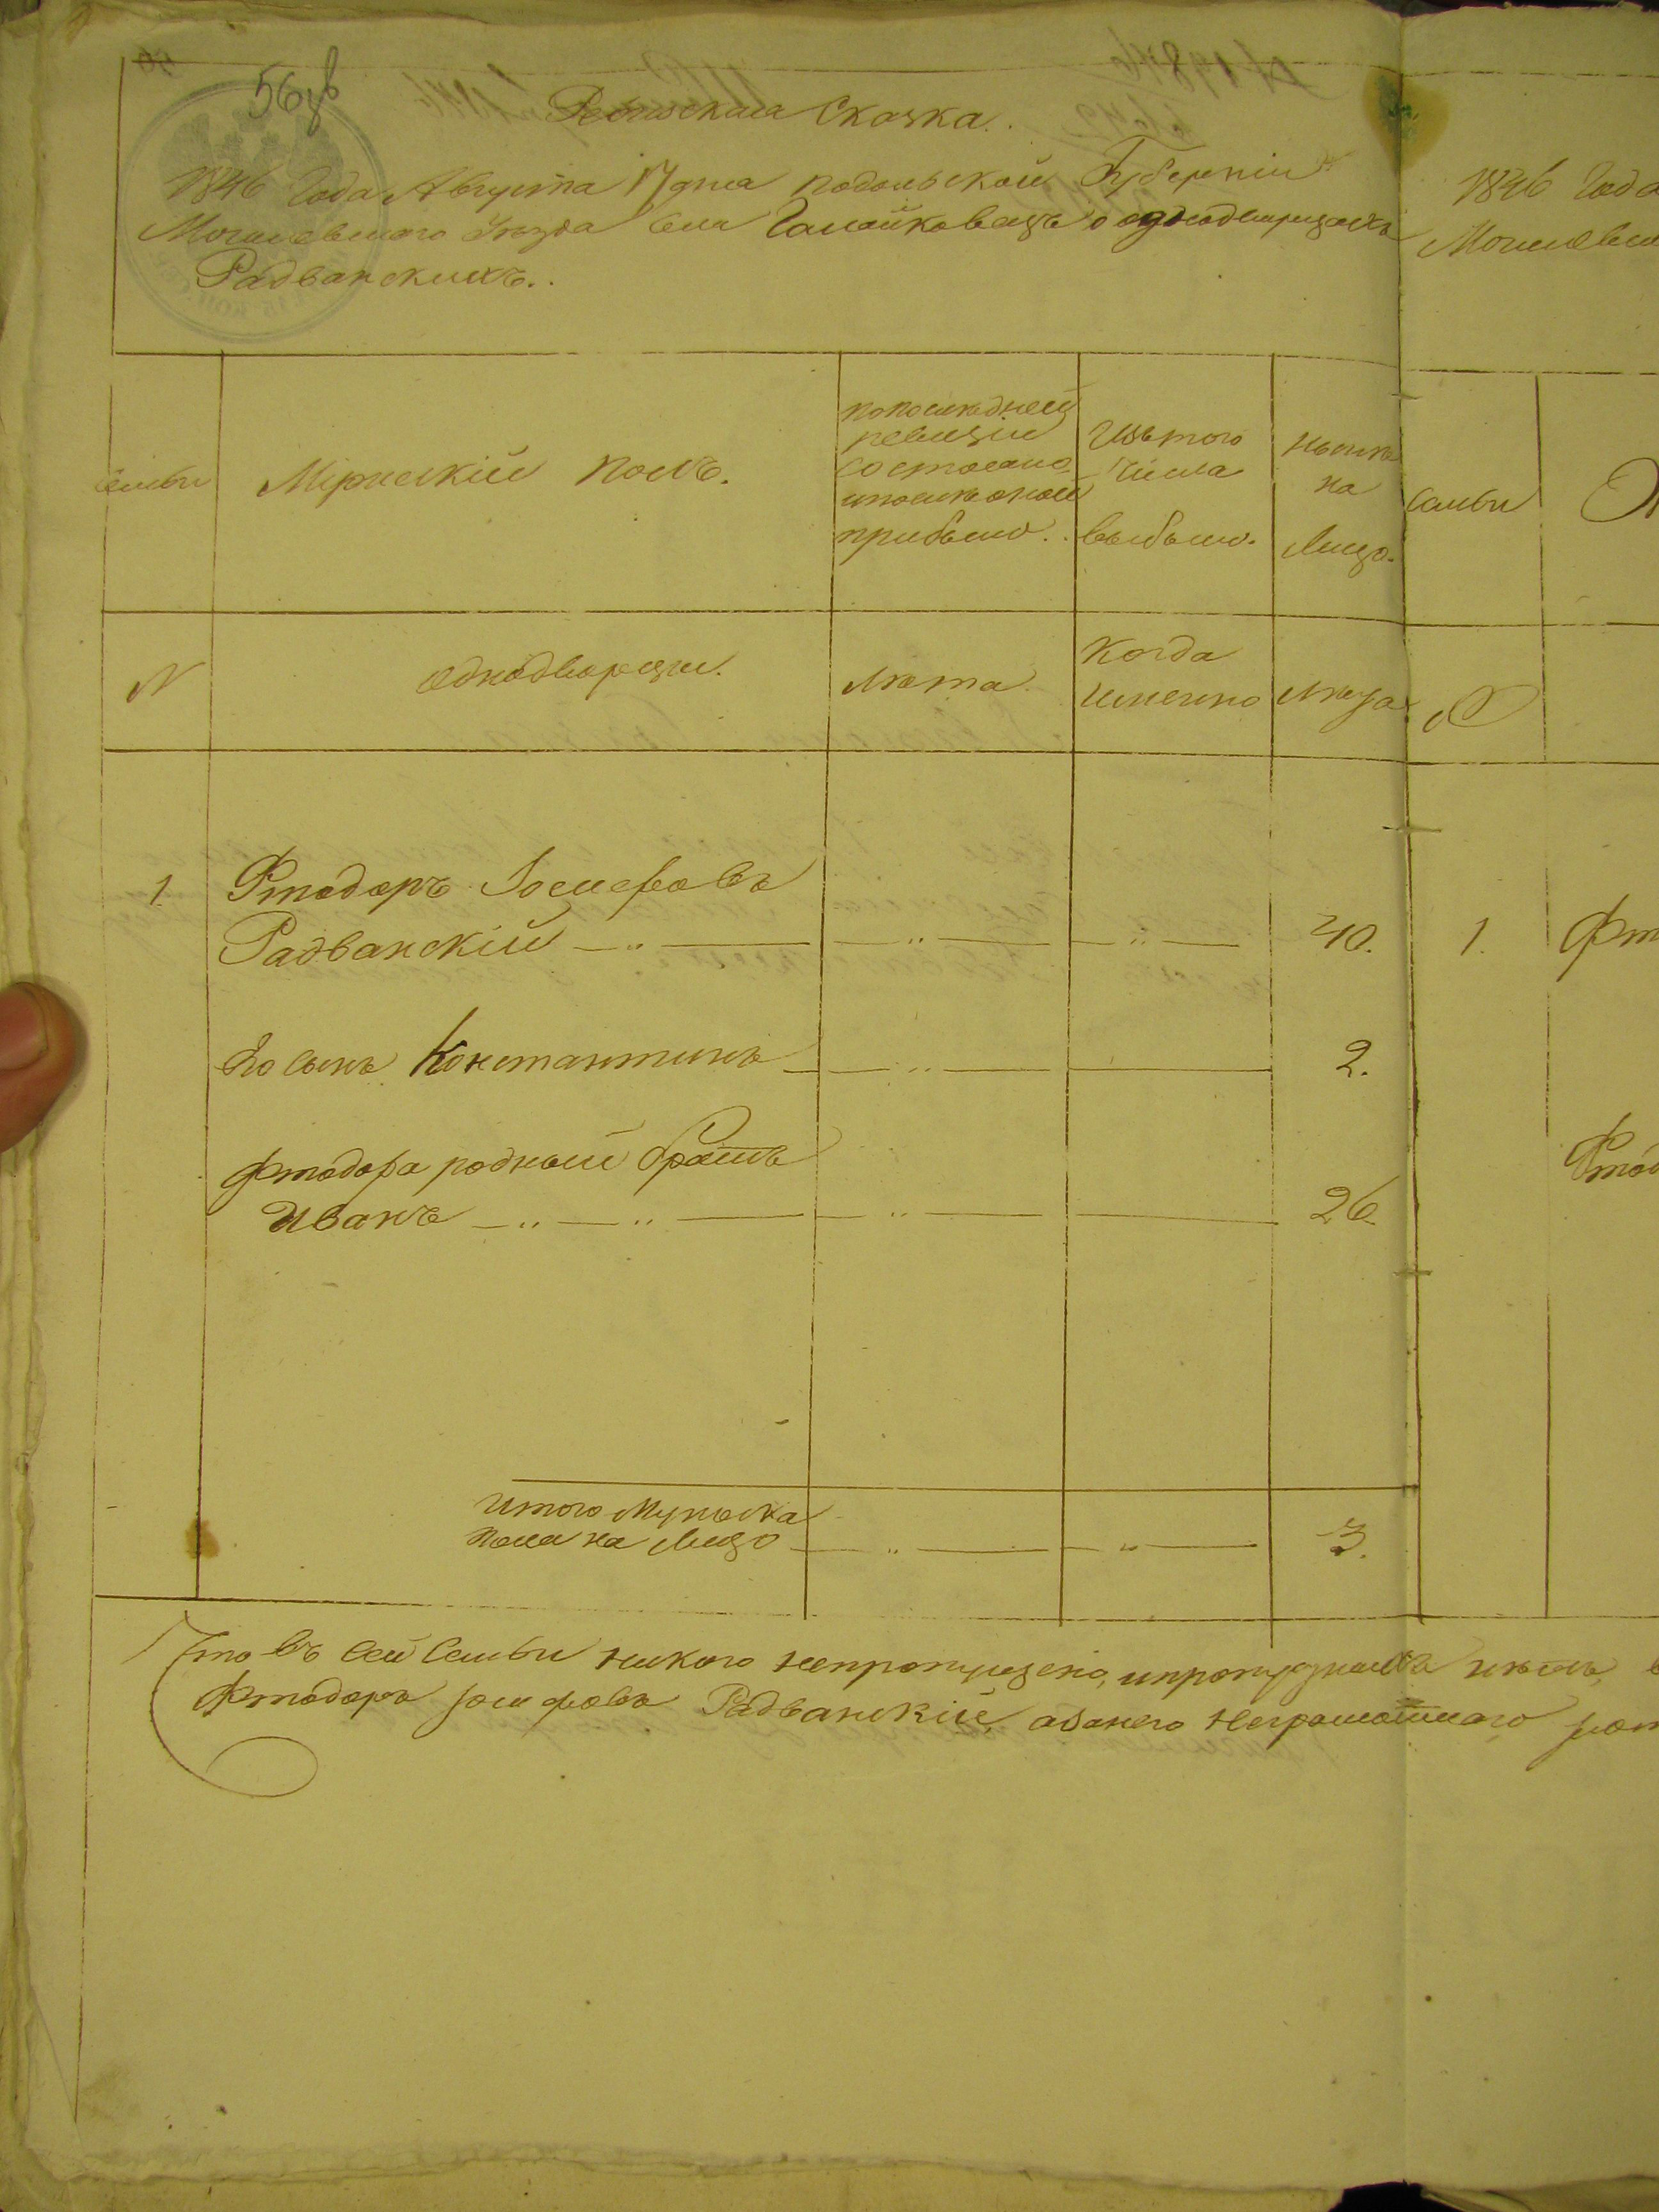 56 зв
Ревизская Сказка.
1846 Года Августа 17 дня Подольской Губерніи
Могилевскаго Уезда села Галайковецъ о однодворцахъ
Радванскихъ.
1846 Года
семьи
Мужескій полъ.
по последней
ревизіи
состояло
и после оной
прибыло.
Изъ того
числа
выбыло.
ныне
на
лицо.
семьи
N
однодворцы.
лета.
Когда
именно
лета
N
1
Фтодоръ Іосифовъ
Радванскій
40.
1.
Его сынъ Константинъ
2.
Фтодора родный братъ
Иванъ
26.
Итого Мужеска
пола на лицо
3.
Что въ сей семьи никого непропущено, и пропущенныхъ нетъ,
Фтодоръ Іосифовъ Радванскій, а за него неграмотнаго